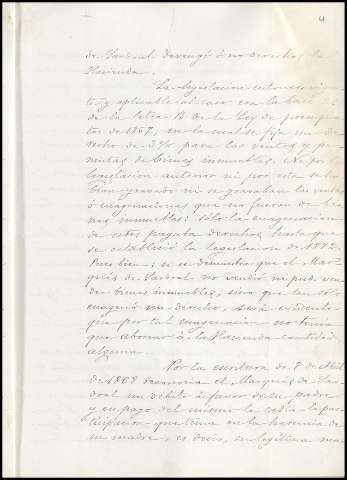 4
de Sardoal devengó ó no derechos la
Hacienda.
La legislacion entonces vigen
te y aplicable al caso era la base 2ª
de la letra B de la Ley de presupues
tos de 1867, en la cual se fija un de
recho de 3% para las ventas y per
mutas de bienes inmuebles. Ni por la
legislacion anterior ni por esta se ha
bian gravado ni se gravaban las ventas
ó enagenaciones que no fueran de bie
nes inmuebles: sólo la enagenacion
de estos pagaba derechos hasta que
se estableció la legislacion de 1872.
Pues bien: si se demuestra que el Mar
qués de Sardoal no vendió ni pudo ven
der bienes inmuebles, sino que solo
enagenó un derecho, será evidente
que por tal enagenacion no tenia
que abonar á la Hacienda cantidad
alguna.
Por la escritura de 7 de Abril
de 1868 reconocia el Marqués de Sar
doal un débito á favor de su padre
y en pago del mismo le cedia la par
ticipacion que tenia en la herencia de
su madre, es decir, su legítima ma